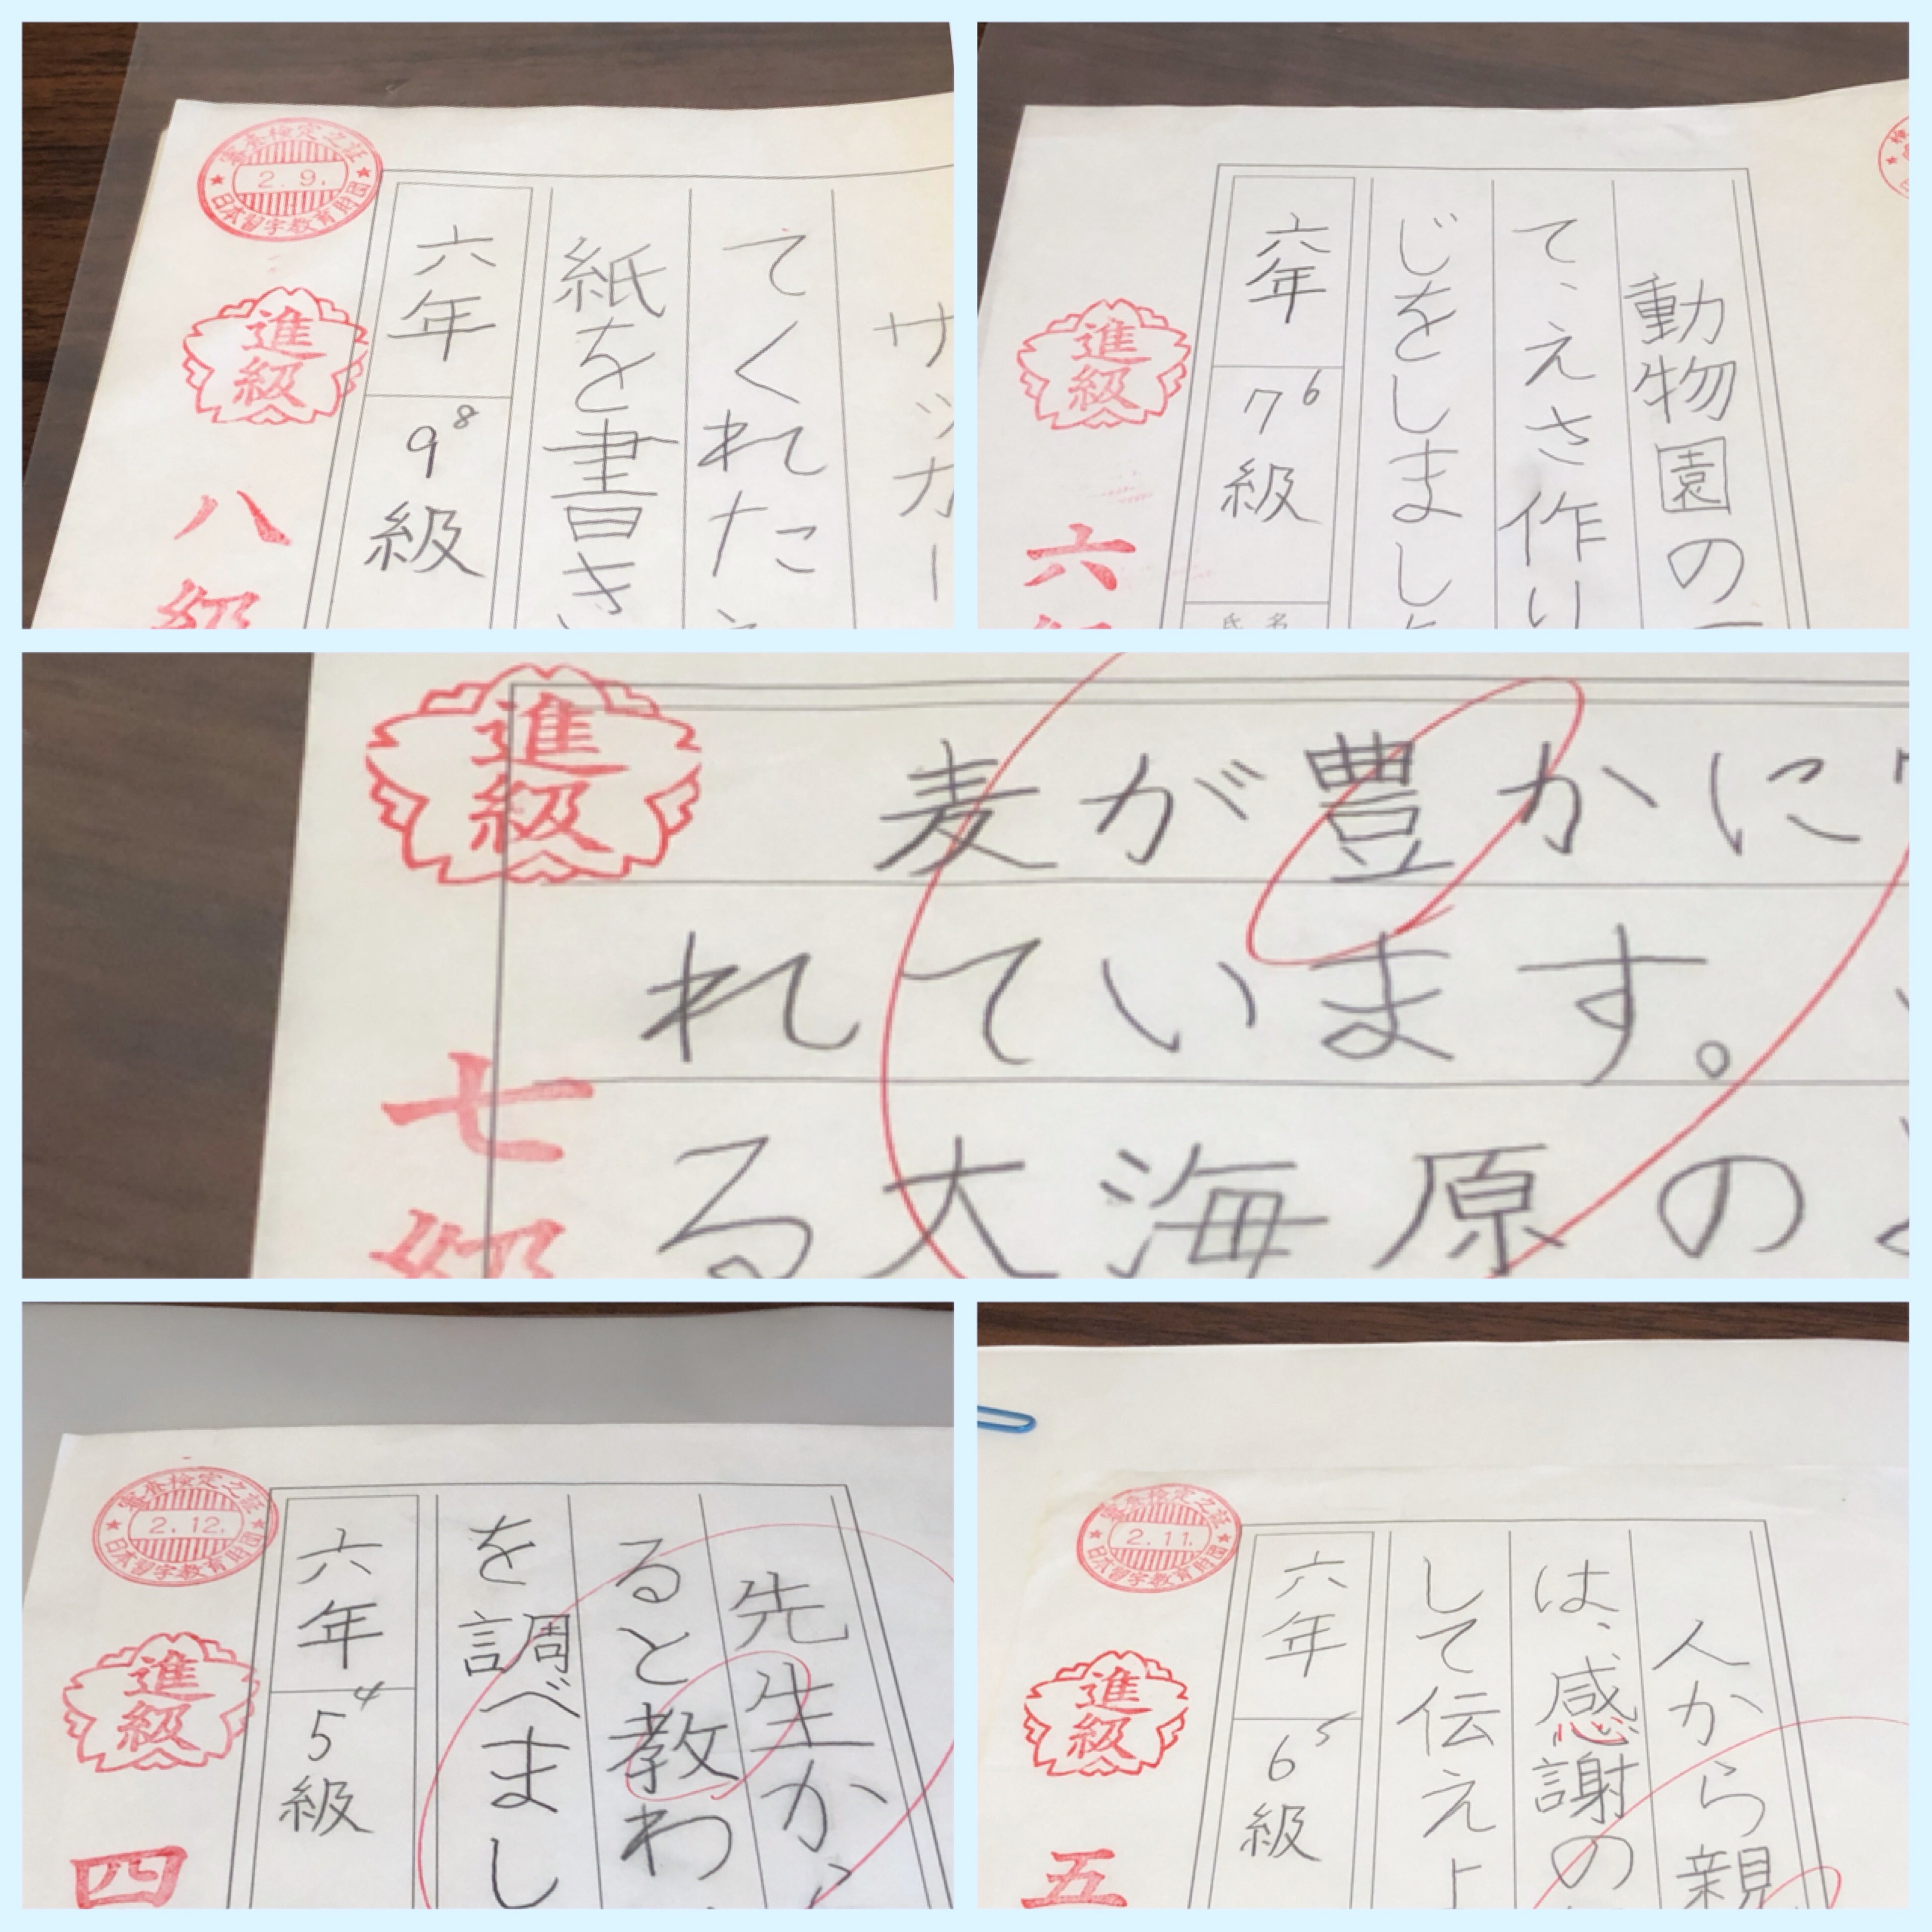 サッカー
てくれた
紙を書き
六年
9 8
級
審査検定之証
2.9.
日本習字教育財団
進級
八級
動物園の
て、えさ作り
じをしまし
六年
7 6
級
氏名
進級
六
進級
七級
麦が豊かに
れています。
る大海原の
先生か
ると教わ
を調べまし
六年
5 4
級
審査検定之証
2.12.
日本習字教育財団
進級
四
人から親
は、感謝の
して伝えよ
六年
6 5
級
審査検定之証
2.11.
日本習字教育財団
進級
五